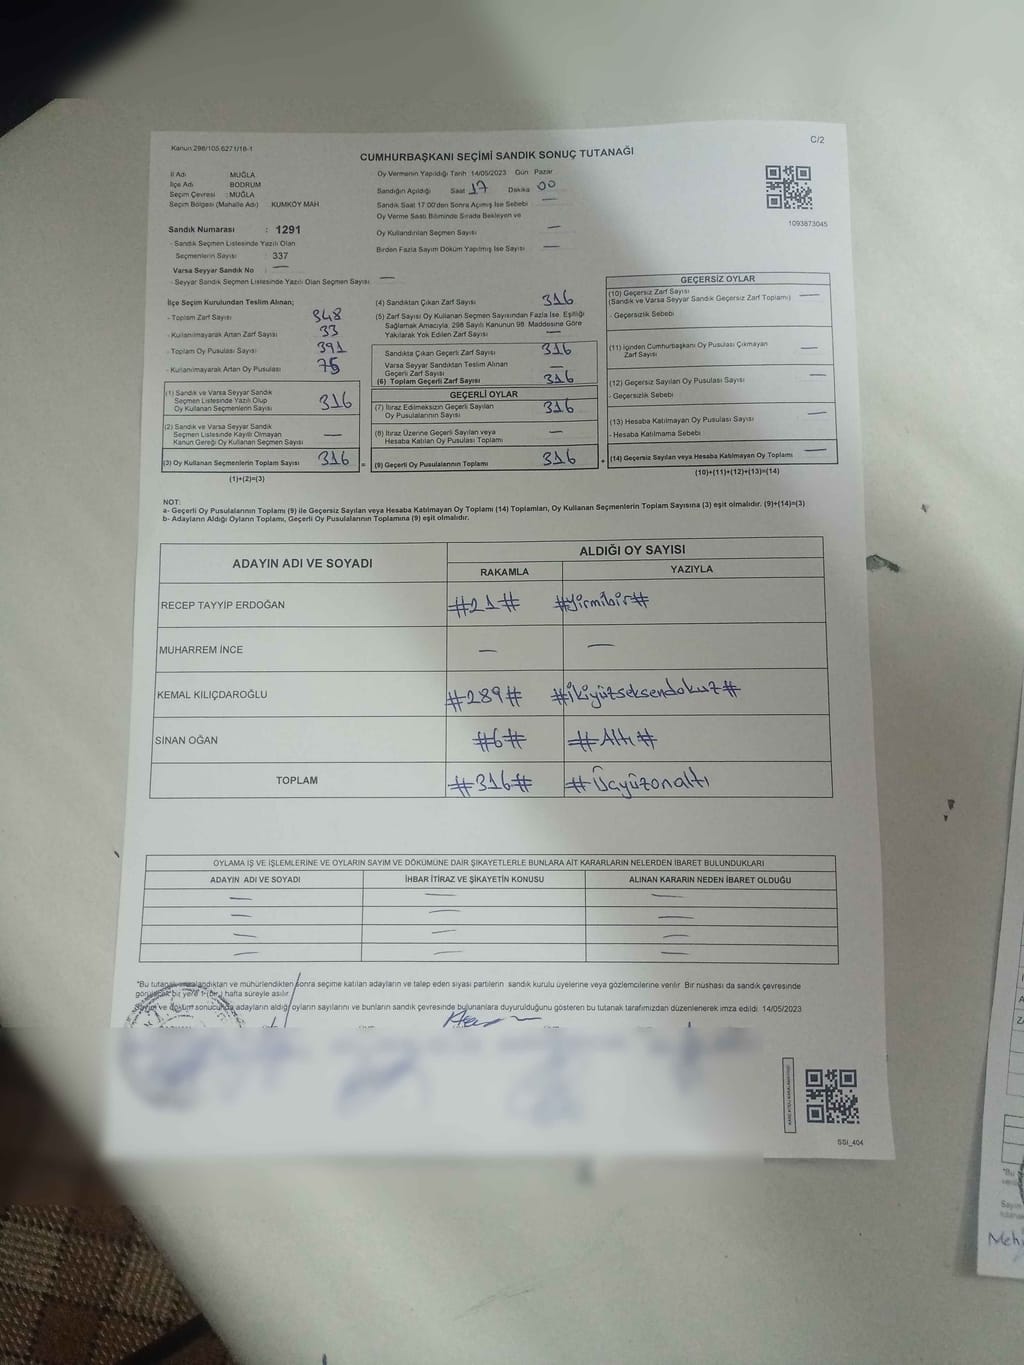 Kanun:298/105,6271/18-1
C/2
CUMHURBAŞKANI SEÇİMİ SANDIK SONUÇ TUTANAĞI
İl Adı : MUĞLA
İlçe Adı : BODRUM
Seçim Çevresi : MUĞLA
Seçim Bölgesi (Mahalle Adı) : KUMKÖY MAH
Sandık Numarası : 1291
- Sandık Seçmen Listesinde Yazılı Olan
Seçmenlerin Sayısı : 337
Varsa Seyyar Sandık No : —
- Seyyar Sandık Seçmen Listesinde Yazılı Olan Seçmen Sayısı : —
Oy Vermenin Yapıldığı Tarih 14/05/2023 Gün Pazar
Sandığın Açıldığı Saat 17 Dakika 00
Sandık Saat 17.00'den Sonra Açılmış İse Sebebi —
Oy Verme Saati Bitiminde Sırada Bekleyen ve
Oy Kullandırılan Seçmen Sayısı —
Birden Fazla Sayım Döküm Yapılmış İse Sayısı —
1093873045
İlçe Seçim Kurulundan Teslim Alınan;
- Toplam Zarf Sayısı 348
- Kullanılmayarak Artan Zarf Sayısı 33
- Toplam Oy Pusulası Sayısı 391
- Kullanılmayarak Artan Oy Pusulası 75
(1) Sandık ve Varsa Seyyar Sandık
Seçmen Listesinde Yazılı Olup
Oy Kullanan Seçmenlerin Sayısı 316
(2) Sandık ve Varsa Seyyar Sandık
Seçmen Listesinde Kayıtlı Olmayan
Kanun Gereği Oy Kullanan Seçmen Sayısı —
(3) Oy Kullanan Seçmenlerin Toplam Sayısı 316 =
(1)+(2)=(3)
(4) Sandıktan Çıkan Zarf Sayısı 316
(5) Zarf Sayısı Oy Kullanan Seçmen Sayısından Fazla İse, Eşitliği
Sağlamak Amacıyla, 298 Sayılı Kanunun 98. Maddesine Göre
Yakılarak Yok Edilen Zarf Sayısı —
Sandıkta Çıkan Geçerli Zarf Sayısı 316
Varsa Seyyar Sandıktan Teslim Alınan
Geçerli Zarf Sayısı —
(6) Toplam Geçerli Zarf Sayısı 316
GEÇERLİ OYLAR
(7) İtiraz Edilmeksizin Geçerli Sayılan
Oy Pusulalarının Sayısı 316
(8) İtiraz Üzerine Geçerli Sayılan veya
Hesaba Katılan Oy Pusulası Toplamı —
(9) Geçerli Oy Pusulalarının Toplamı 316 +
GEÇERSİZ OYLAR
(10) Geçersiz Zarf Sayısı
(Sandık ve Varsa Seyyar Sandık Geçersiz Zarf Toplamı) —
- Geçersizlik Sebebi
(11) İçinden Cumhurbaşkanı Oy Pusulası Çıkmayan
Zarf Sayısı —
(12) Geçersiz Sayılan Oy Pusulası Sayısı —
- Geçersizlik Sebebi
(13) Hesaba Katılmayan Oy Pusulası Sayısı —
- Hesaba Katılmama Sebebi
(14) Geçersiz Sayılan veya Hesaba Katılmayan Oy Toplamı —
(10)+(11)+(12)+(13)=(14)
NOT:
a- Geçerli Oy Pusulalarının Toplamı (9) ile Geçersiz Sayılan veya Hesaba Katılmayan Oy Toplamı (14) Toplamları, Oy Kullanan Seçmenlerin Toplam Sayısına (3) eşit olmalıdır. (9)+(14)=(3)
b- Adayların Aldığı Oyların Toplamı, Geçerli Oy Pusulalarının Toplamına (9) eşit olmalıdır.
ADAYIN ADI VE SOYADI
ALDIĞI OY SAYISI
RAKAMLA YAZIYLA
RECEP TAYYİP ERDOĞAN #21# #Yirmibir#
MUHARREM İNCE — —
KEMAL KILIÇDAROĞLU #289# #ikiyüzseksendokuz#
SİNAN OĞAN #6# #Altı#
TOPLAM #316# #Üçyüzonaltı
OYLAMA İŞ VE İŞLEMLERİNE VE OYLARIN SAYIM VE DÖKÜMÜNE DAİR ŞİKAYETLERLE BUNLARA AİT KARARLARIN NELERDEN İBARET BULUNDUKLARI
ADAYIN ADI VE SOYADI İHBAR İTİRAZ VE ŞİKAYETİN KONUSU ALINAN KARARIN NEDEN İBARET OLDUĞU
— — —
— — —
— — —
— — —
*Bu tutanak imzalandıktan ve mühürlendikten sonra seçime katılan adayların ve talep eden siyasi partilerin sandık kurulu üyelerine veya gözlemcilerine verilir. Bir nüshası da sandık çevresinde
görülecek bir yere 1 (bir) hafta süreyle asılır.
Sayım ve döküm sonucunda adayların aldığı oyların sayılarını ve bunların sandık çevresinde bulunanlara duyurulduğunu gösteren bu tutanak tarafımızdan düzenlenerek imza edildi. 14/05/2023
SSİ_404
Mehm